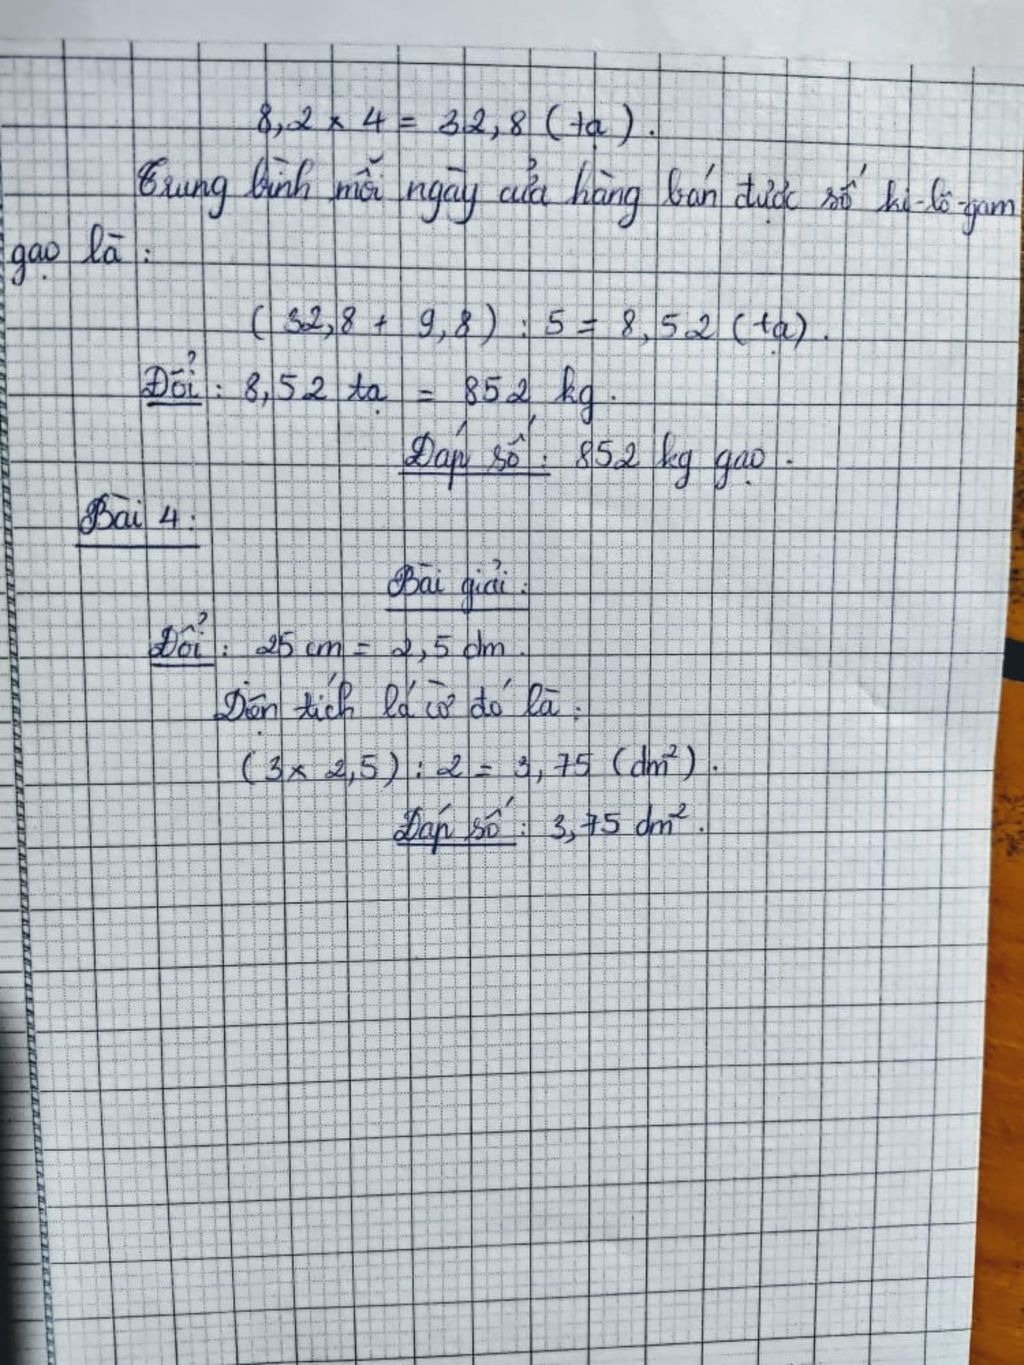 8,2 x 4 = 32,8 (tạ).
Trung bình mỗi ngày cửa hàng bán được số ki-lô-gam
gạo là :
(32,8 + 9,8) : 5 = 8,52 (tạ).
Đổi : 8,52 tạ = 852 kg.
Đáp số : 852 kg gạo.
Bài 4 :
Bài giải :
Đổi : 25 cm = 2,5 dm.
Diện tích lá cờ đó là :
(3 x 2,5) : 2 = 3,75 (dm²).
Đáp số : 3,75 dm².